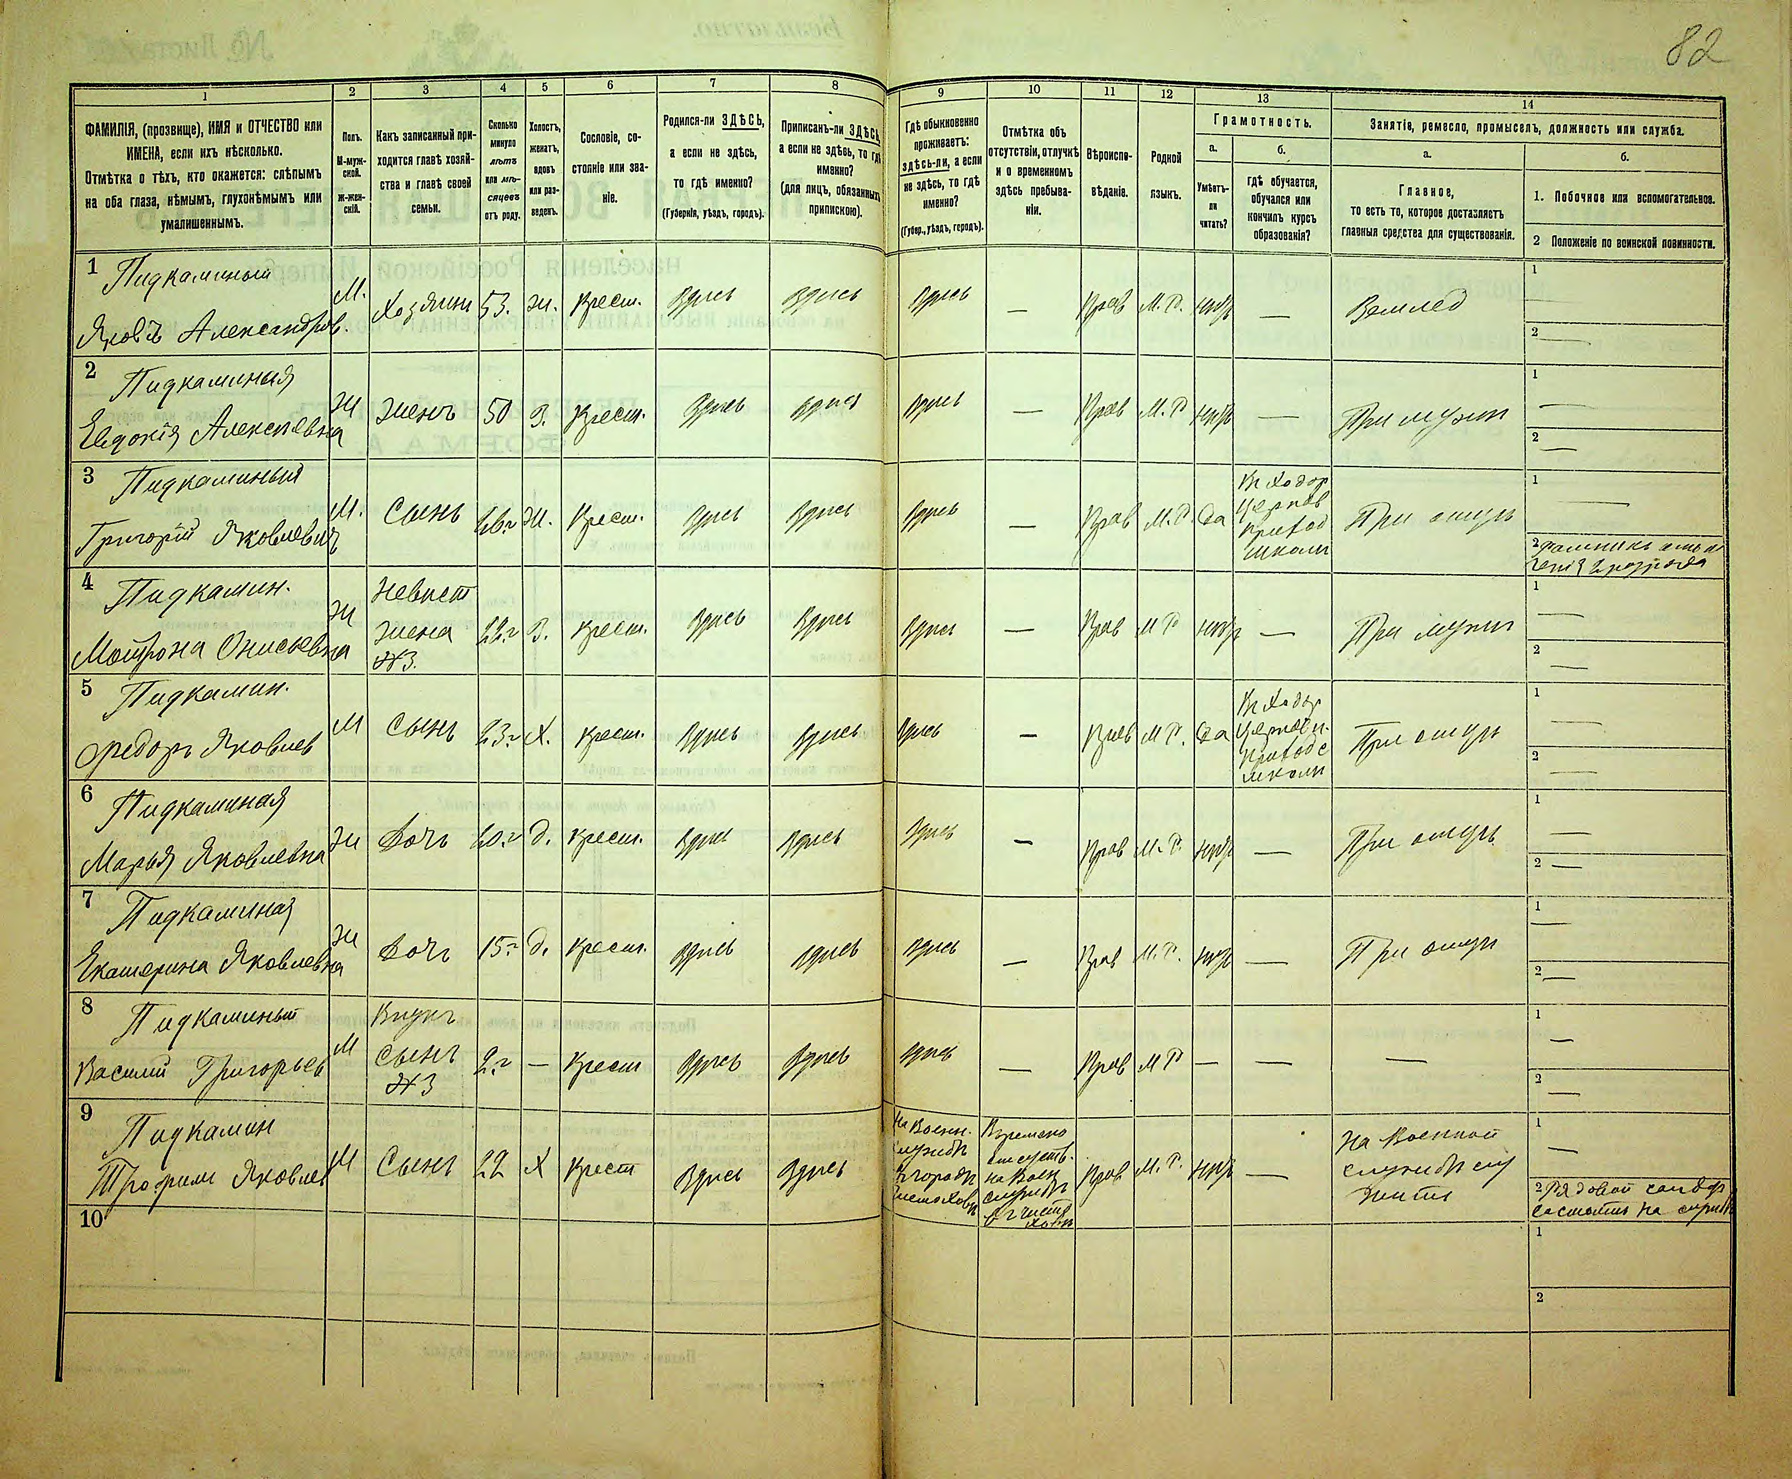 82
1 2 3 4 5 6 7 8 9 10 11 12 13 14
ФАМИЛІЯ, (прозвище), ИМЯ и ОТЧЕСТВО или
ИМЕНА, если ихъ нѣсколько.
Отмѣтка о тѣхъ, кто окажется: слѣпымъ
на оба глаза, нѣмымъ, глухонѣмымъ или
умалишеннымъ.
Полъ.
М-муж-
ской.
Ж-жен-
скій.
Какъ записанный при-
ходится главѣ хозяй-
ства и главѣ своей
семьи.
Сколько
минуло
лѣтъ
или мѣ-
сяцевъ
отъ роду.
Холостъ,
женатъ,
вдовъ
или раз-
веденъ.
Сословіе, со-
стояніе или зва-
ніе.
Родился-ли ЗДѢСЬ,
а если не здѣсь,
то гдѣ именно?
(Губернія, уѣздъ, городъ).
Приписанъ-ли ЗДѢСЬ,
а если не здѣсь, то гдѣ
именно?
(для лицъ, обязанныхъ
припискою).
Гдѣ обыкновенно
проживаетъ:
здѣсь-ли, а если
не здѣсь, то гдѣ
именно?
(Губер., уѣздъ, городъ).
Отмѣтка объ
отсутствіи, отлучкѣ
и о временномъ
здѣсь пребыва-
ніи.
Вѣроиспо-
вѣданіе.
Родной
языкъ.
Грамотность.
а.
Умѣетъ-
ли
читать?
б.
Гдѣ обучается,
обучался или
кончилъ курсъ
образованія?
Занятіе, ремесло, промыселъ, должность или служба.
а.
Главное,
то есть то, которое доставляетъ
главныя средства для существованія.
б.
1. Побочное или вспомогательное.
2 Положеніе по воинской повинности.
1 Пидкаминый
Яковъ Александров. М. Хозяинъ 53. ж. Крест. Здѣсь Здѣсь Здѣсь — Прав М.Р. нѣтъ — Землед
1 —
2 —
2 Пидкаминая
Евдокія Алексѣевна Ж жена 50 З. Крест. Здѣсь Здѣсь Здѣсь — Прав М.Р нѣтъ — При мужѣ
1 —
2 —
3 Пидкаминый
Григорій Яковлевич М. Сынъ 26 г ж. Крест. Здѣсь Здѣсь Здѣсь — Прав М.Р. Да
церков
приход
школы
При отцѣ
1 —
2
4 Пидкамин.
Мотрона Онисѣевна Ж Невѣст
жена
№3. 22 г З. Крест. Здѣсь Здѣсь Здѣсь — Прав М Р нѣтъ — При мужѣ
1 —
2 —
5 Пидкамин.
Федоръ Яковлев М Сынъ 23 г Х. Крест. Здѣсь Здѣсь Здѣсь — Прав М Р. Да
церков
приход
школы
При отцѣ
1 —
2 —
6 Пидкаминая
Марья Яковлевна Ж Дочь 20 г Д. Крест. Здѣсь Здѣсь Здѣсь — Прав М.Р. нѣтъ — При отцѣ
1 —
2 —
7 Пидкаминая
Екатерина Яковлевна Ж Дочь 15 г Д. Крест. Здѣсь Здѣсь Здѣсь — Прав М.Р. нѣтъ — При отцѣ
1 —
2 —
8 Пидкаминый
Василий Григорьев М Внукъ
сынъ
№3 2 г — Крест Здѣсь Здѣсь Здѣсь — Прав М Р — — —
1 —
2 —
9 Пидкамин
Трофим Яковлев М Сынъ 22 Х Крест Здѣсь Здѣсь
На Военн.
службѣ
в городѣ
Времено
отсутств.
на Воен
службѣ
Прав М.Р. нѣтъ —
На Военной
службѣ
1 —
2 Рядовой
состоитъ на службѣ
10
1
2